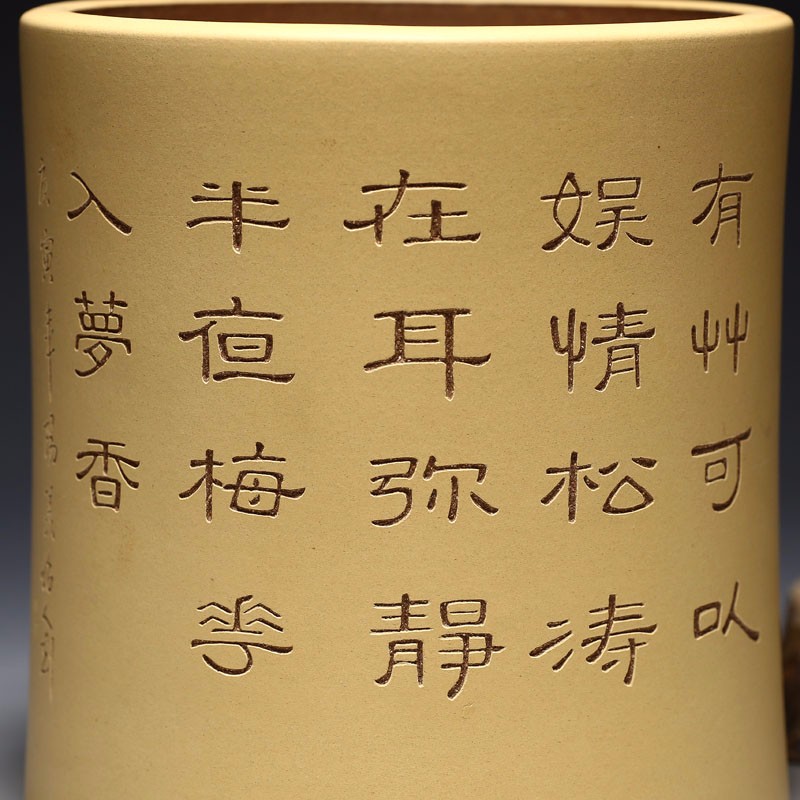 有艸可以
娱情松涛
在耳弥静
半亱梅花
入夢香